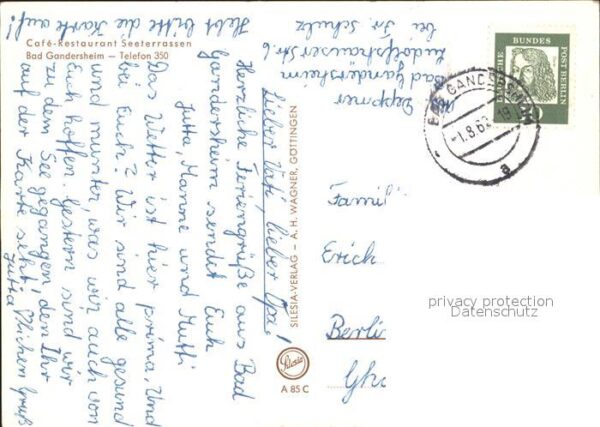 Café-Restaurant Seeterrassen
Bad Gandersheim — Telefon 350
Hebt bitte die Karte auf!
Lieber Vati, lieber Opa!
Herzliche Feriengrüße aus Bad
Gandersheim sendet Euch
Jutta, Manne und Mutti
Das Wetter ist hier prima. Und
bei Euch? Wir sind alle gesund
und munter, was wir auch von
Euch hoffen. Gestern sind wir
zu dem See gegangen, den Ihr
auf der Karte seht!
Jutta
SILESIA-VERLAG — A. H. WAGNER, GÖTTINGEN
Silesia
A 85 C
Bad Gandersheim
Ludolfshauser Str. 6
bei Fr. Schulz
DEUTSCHE
BUNDES
POST BERLIN
BAD GANDERSHEIM
-1.8.62
a
Familie
Erich
Berli
privacy protection
Datenschutz